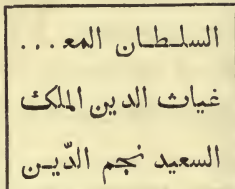 السلطان المع...
غياث الدين الملك
السعيد نجم الدّين